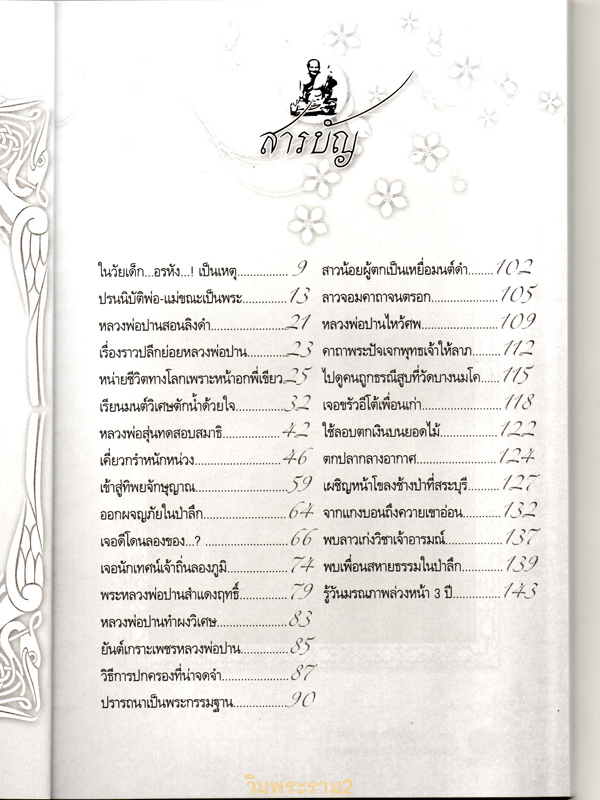 สารบัญ
ในวัยเด็ก...อรหัง...! เป็นเหตุ............... 9
ปรนนิบัติพ่อ-แม่ขณะเป็นพระ.............13
หลวงพ่อปานสอนลิงดำ......................21
เรื่องราวปลีกย่อยหลวงพ่อปาน...........23
หน่ายชีวิตทางโลกเพราะหน้าอกพี่เขียว..25
เรียนมนต์วิเศษตักน้ำด้วยใจ..............32
หลวงพ่อสุ่นทดสอบสมาธิ..................42
เคี่ยวกรำหนักหน่วง..........................46
เข้าสู่ทิพยจักษุญาณ..........................59
ออกผจญภัยในป่าลึก.........................64
เจอดีโดนลองของ...? .........................66
เจอนักเทศน์เจ้าถิ่นลองภูมิ..................74
พระหลวงพ่อปานสำแดงฤทธิ์..............79
หลวงพ่อปานทำผงวิเศษ....................83
ยันต์เกราะเพชรหลวงพ่อปาน..............85
วิธีการปกครองที่น่าจดจำ....................87
ปรารถนาเป็นพระกรรมฐาน................90
สาวน้อยผู้ตกเป็นเหยื่อมนต์ดำ........102
ลาวจอมคาถาจนตรอก.....................105
หลวงพ่อปานไหว้ศพ........................109
คาถาพระปัจเจกพุทธเจ้าให้ลาภ........112
ไปดูคนถูกธรณีสูบที่วัดบางนมโค......115
เจอขรัวอีโต้เพื่อนเก่า.......................118
ใช้ลอบตกเงินบนยอดไม้...................122
ตกปลากลางอากาศ..........................124
เผชิญหน้าโขลงช้างป่าที่สระบุรี.........127
จากแกงบอนถึงควายเขาอ่อน...........132
พบลาวเก่งวิชาเจ้าอารมณ์................137
พบเพื่อนสหายธรรมในป่าลึก............139
รู้วันมรณภาพล่วงหน้า 3 ปี...............143
วิมพระราม2